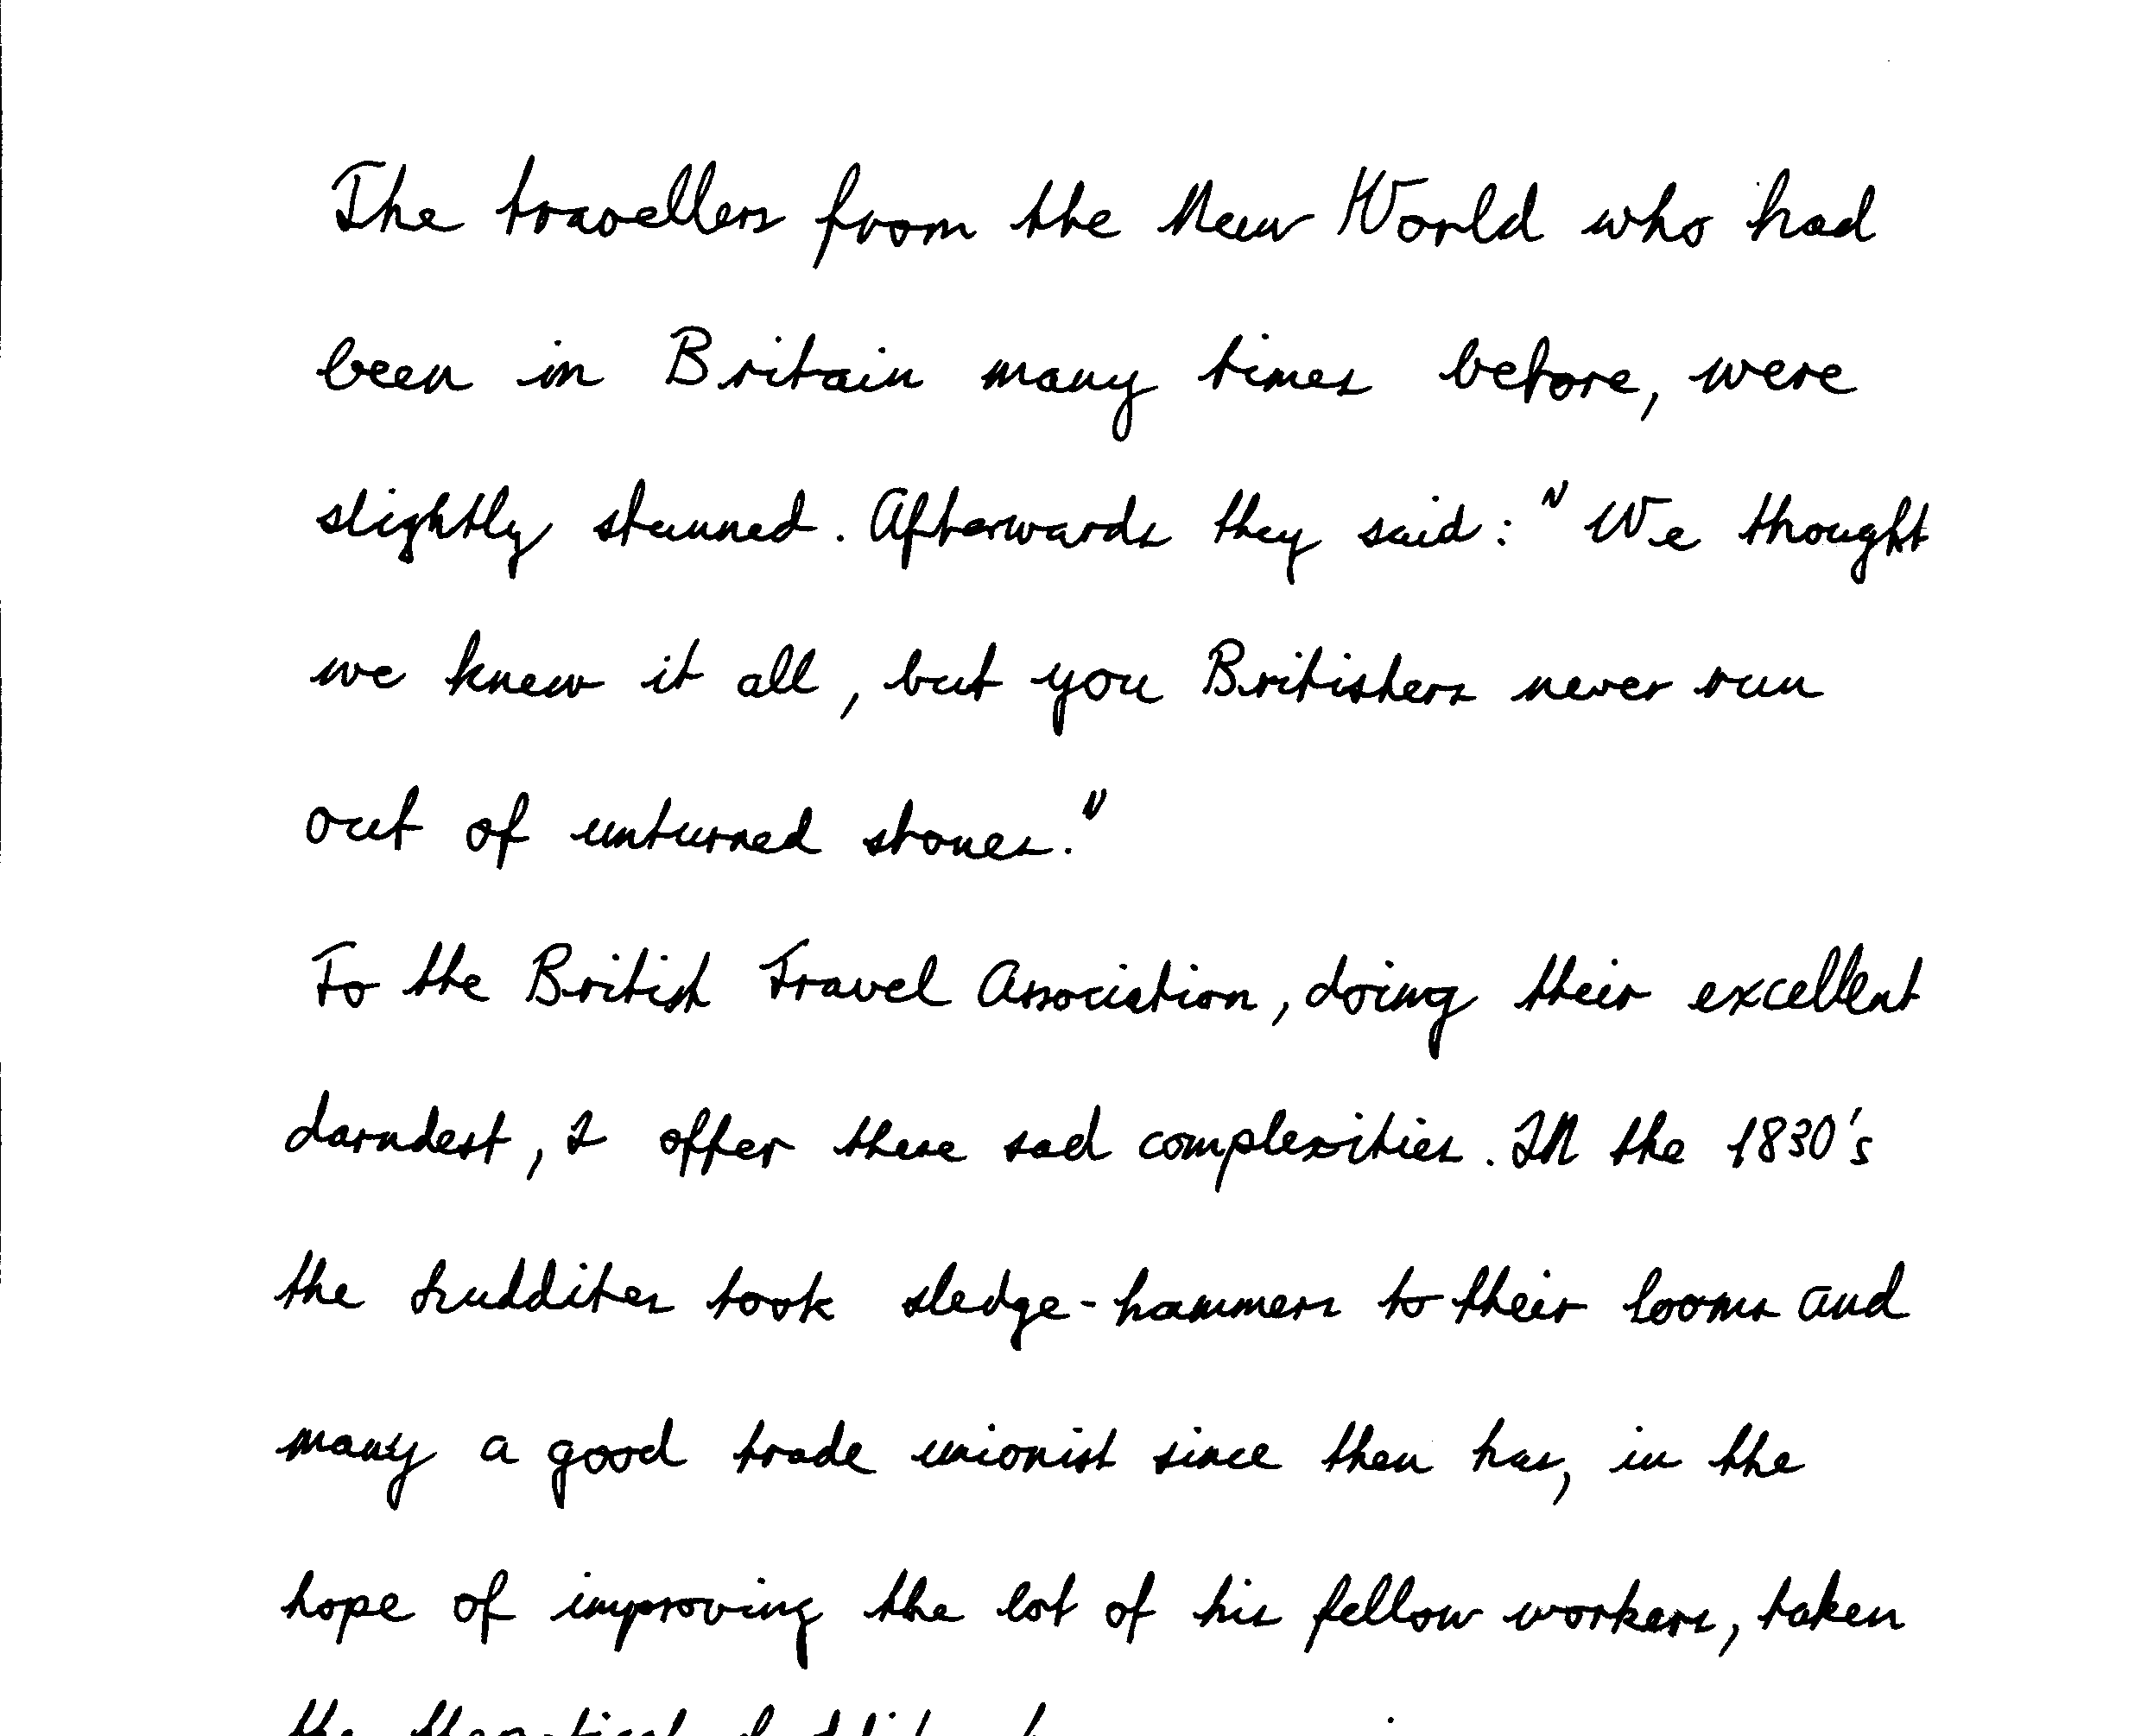 The travellers from the New World who had
been in Britain many times before, were
slightly stunned. Afterwards they said: "We thought
we knew it all, but you Britishers never run
out of unturned stones."
To the British Travel Association, doing their excellent
darndest, I offer these sad complexities. IN the 1830's
the Luddites took sledge-hammers to their looms and
many a good trade unionist since then has, in the
hope of improving the lot of his fellow workers, taken
the